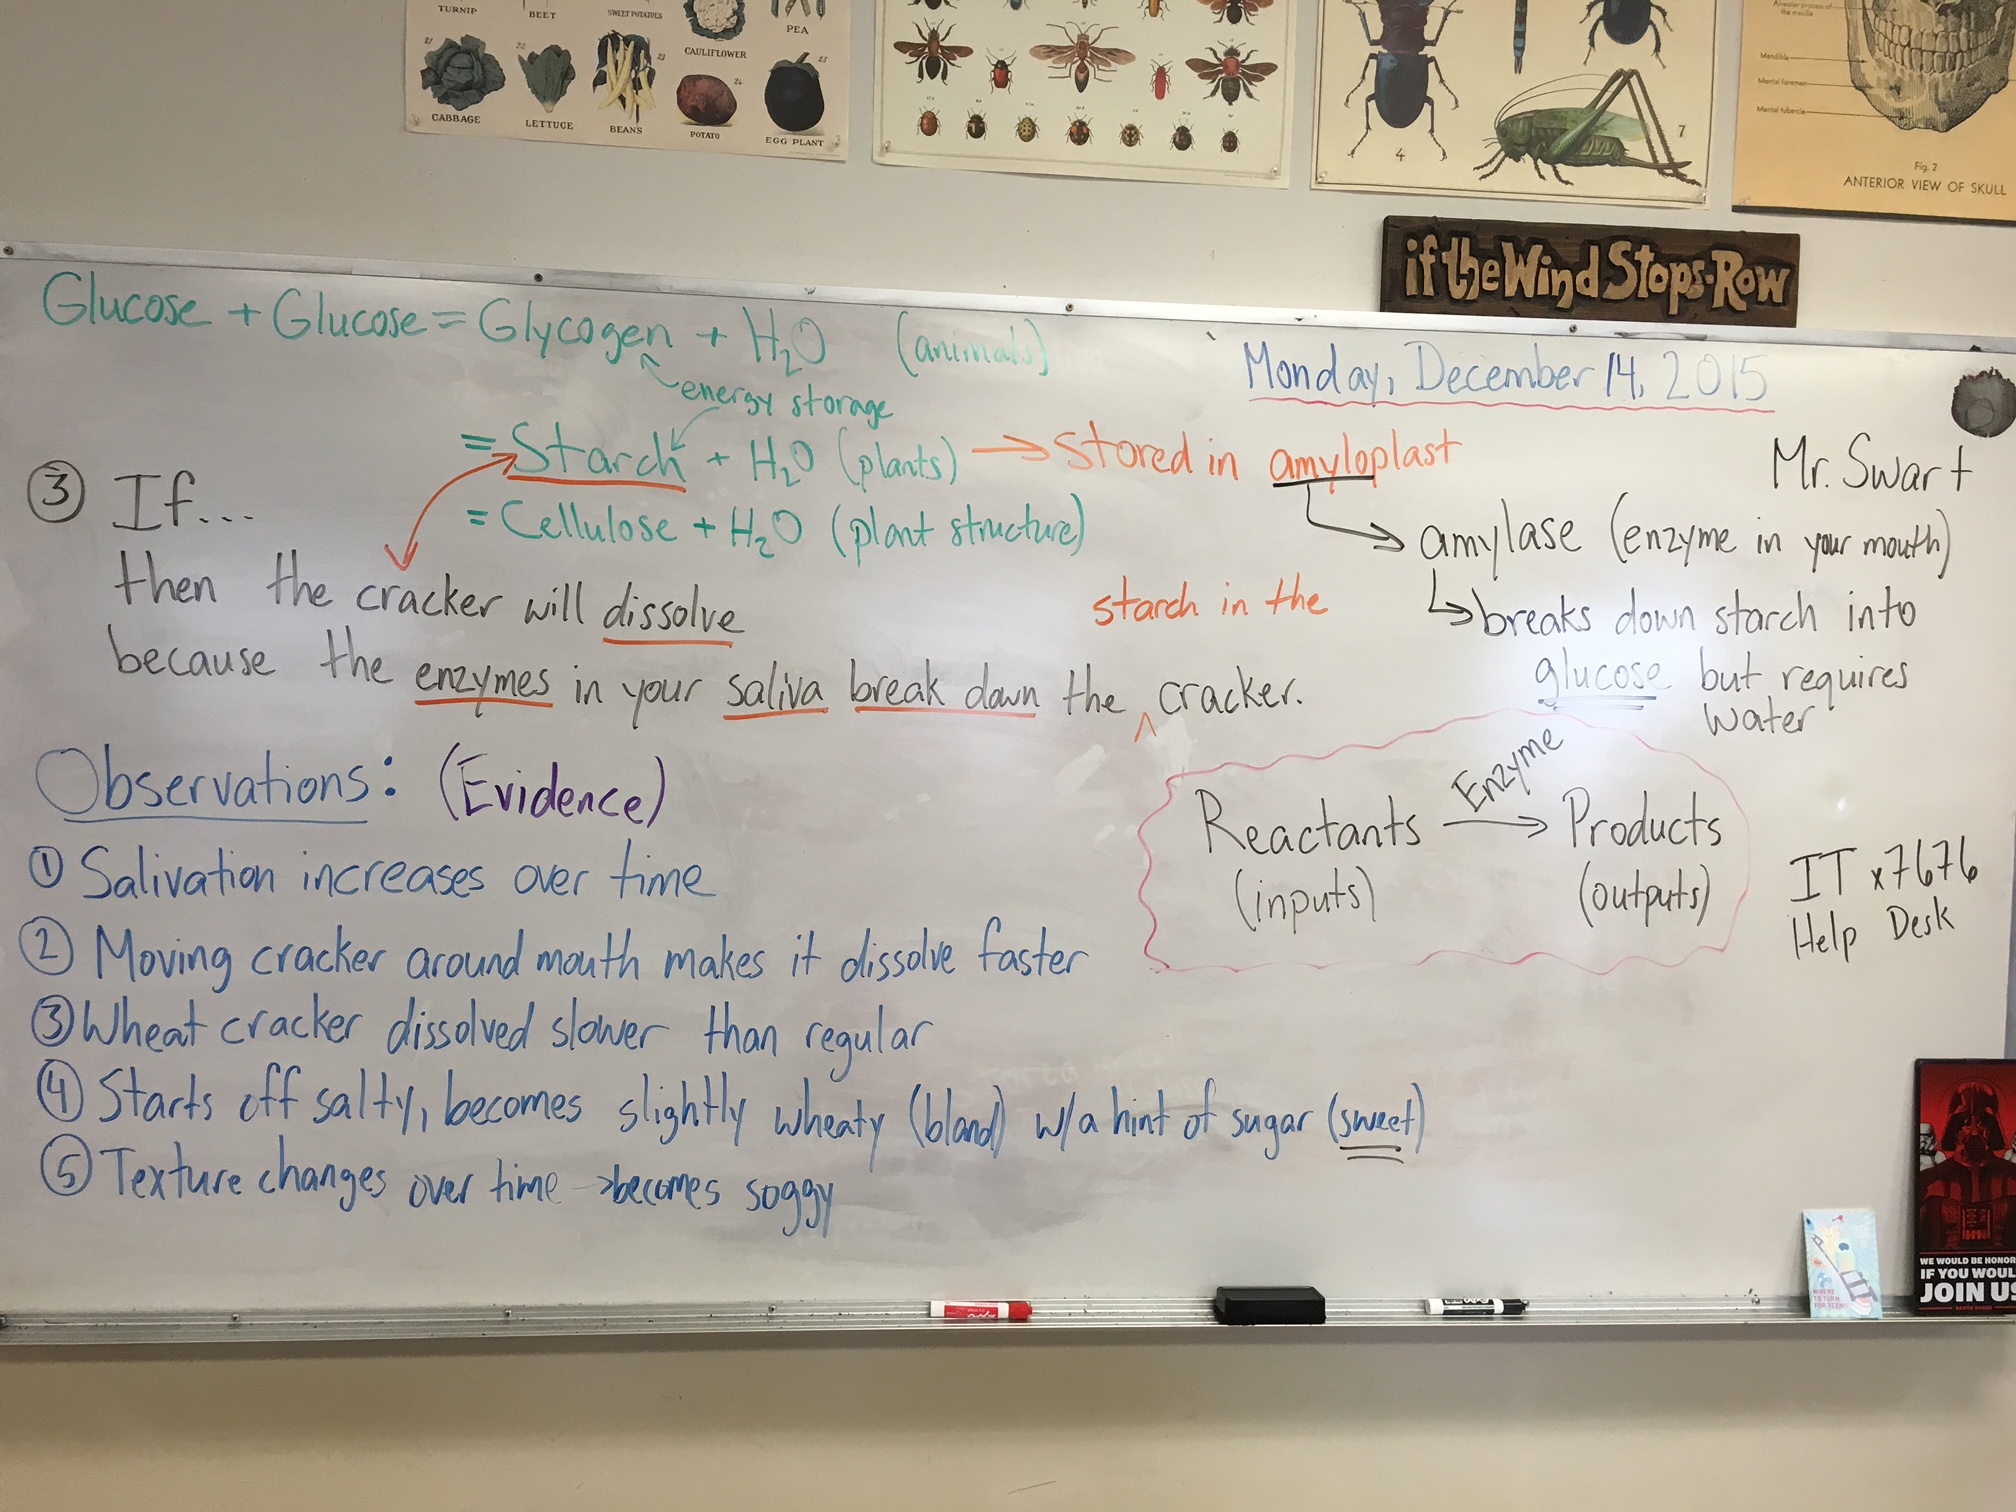 TURNIP
BEET
SWEET POTATOES
CAULIFLOWER
PEA
21
22
23
24
25
CABBAGE
LETTUCE
BEANS
POTATO
EGG PLANT
4
7
Alveolar process of
the maxilla
Mandible
Mental foramen
Mental tubercle
Fig. 2
ANTERIOR VIEW OF SKULL
if the Wind Stops-Row
Glucose + Glucose = Glycogen + H₂O (animals)
energy storage
= Starch + H₂O (plants) → Stored in amyloplast
= Cellulose + H₂O (plant structure)
Monday, December 14, 2015
Mr. Swart
amylase (enzyme in your mouth)
↳ breaks down starch into
glucose but requires
water
③ If...
then the cracker will dissolve
starch in the
because the enzymes in your saliva break down the ^ cracker.
Enzyme
Reactants → Products
(inputs) (outputs)
IT x7676
Help Desk
Observations: (Evidence)
① Salivation increases over time
② Moving cracker around mouth makes it dissolve faster
③ Wheat cracker dissolved slower than regular
④ Starts off salty, becomes slightly wheaty (bland) w/a hint of sugar (sweet)
⑤ Texture changes over time → becomes soggy
WHERE
TO TURN
FOR TEENS
WE WOULD BE HONOR
IF YOU WOUL
JOIN US
DARTH VADER